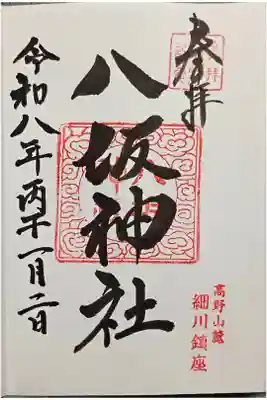 奉拝
八坂神社
高野山麓
細川鎮座
令和八年丙午一月二日